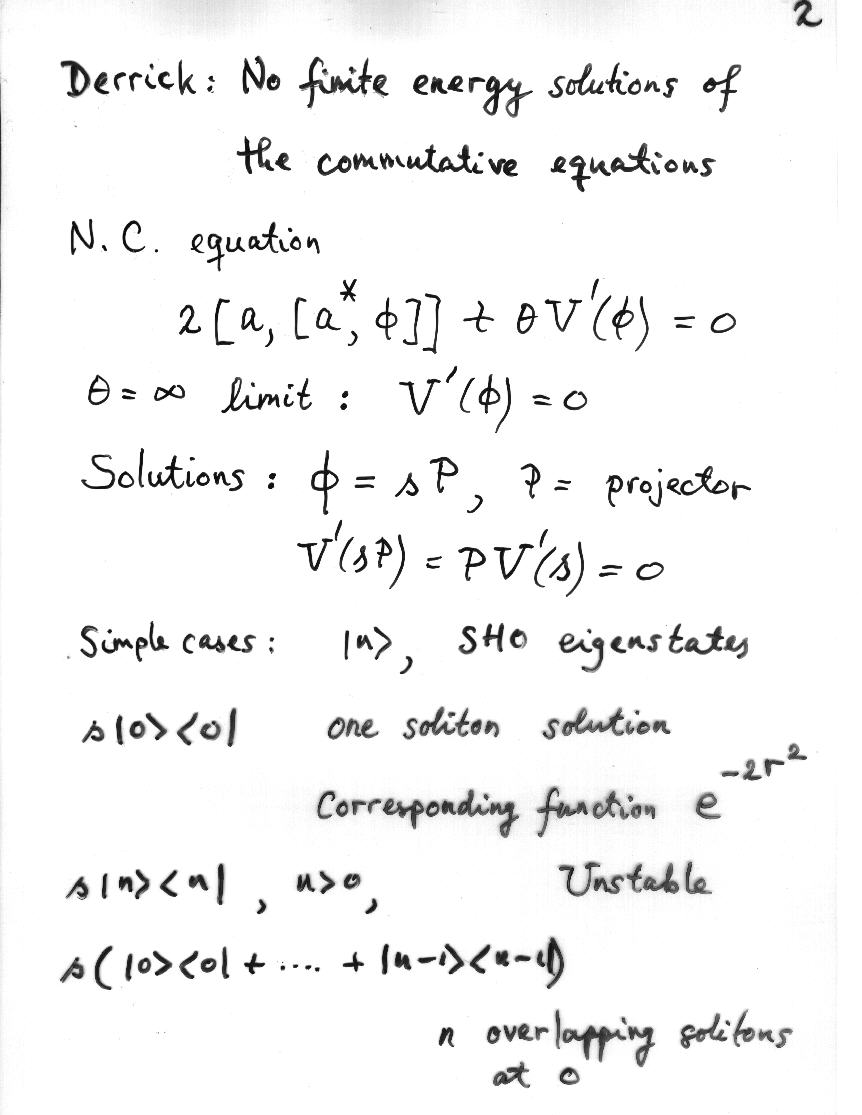 2
Derrick: No finite energy solutions of
the commutative equations
N.C. equation
2[a, [a*, ϕ]] + θV'(ϕ) = 0
θ = ∞ limit : V'(ϕ) = 0
Solutions : ϕ = sP, P = projector
V'(sP) = PV'(s) = 0
Simple cases : |n>, SHO eigenstates
s|0><0| one soliton solution
Corresponding function e^{-2r^2}
s|n><n| , n>0, Unstable
s(|0><0| + .... + |n-1><n-1|)
n overlapping solitons
at 0